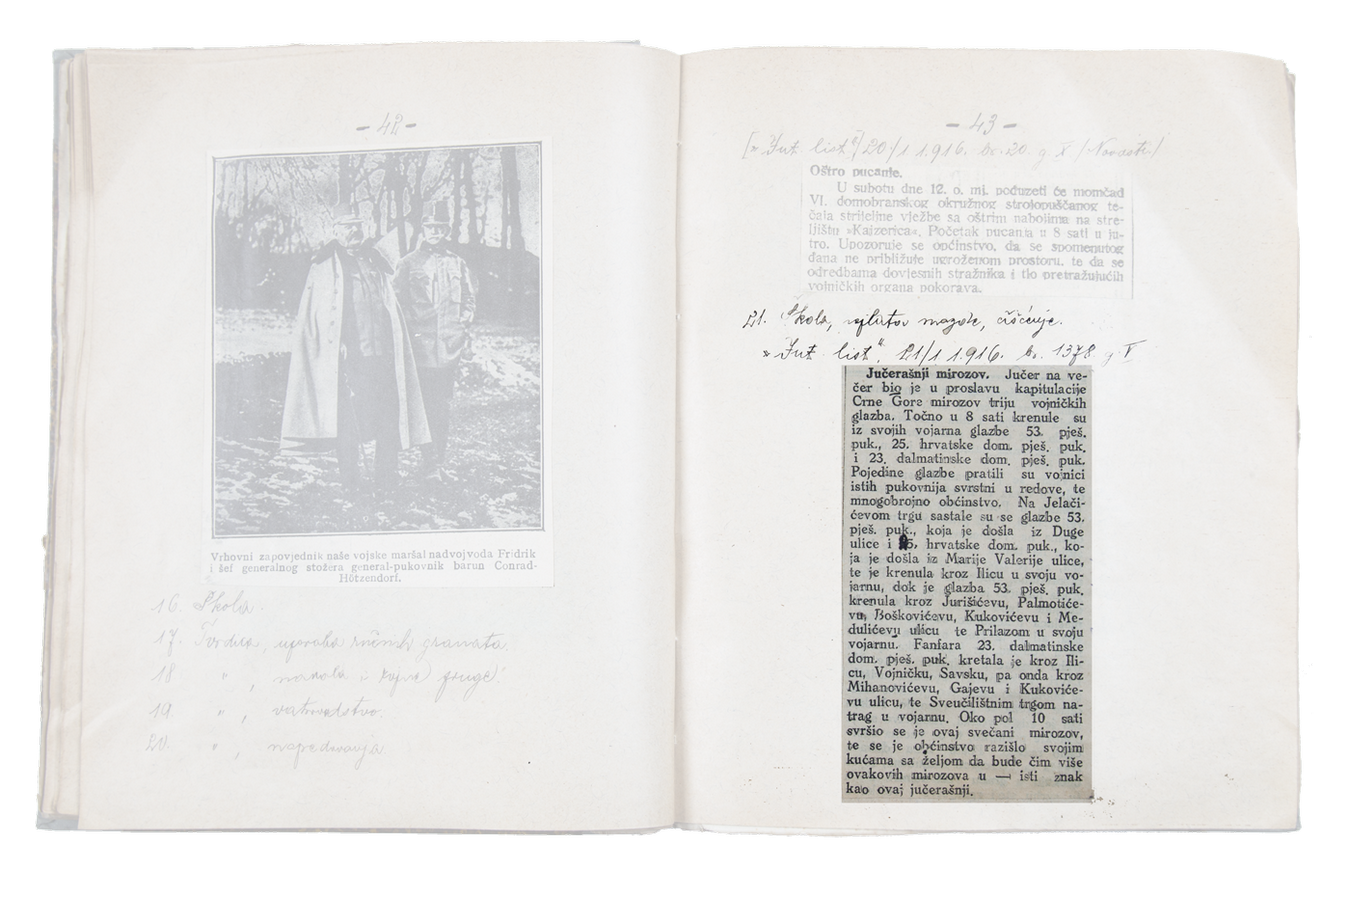 - 42 -
Vrhovni zapovjednik naše vojske maršal nadvojvoda Fridrik
i šef generalnog stožera general-pukovnik barun Conrad-
Hötzendorf.
16. Škola.
17. Tvrdica, uporaba ručnih granata.
18 " ,
19. " ,
20. " , napredovanja
- 43 -
["Jut. list"] 20/1 1.916. br. 20. g. X (Novosti)
Oštro pucanje.
U subotu dne 12. o. mj. poduzeti će momčad
VI. domobranskog okružnog strojopuščanog te-
čaja strijeljne vježbe sa oštrim nabojima na stre-
ljištu »Kajzerica«. Početak pucanja u 8 sati u ju-
tro. Upozoruje se općinstvo, da se spomenutog
dana ne približuje ugroženom prostoru, te da se
odredbama dovjesnih stražnika i tlo pretražujućih
vojničkih organa pokorava.
21. Škola, čišćenje.
"Jut. list", 21/1 1.916. br. 1378. g. V
Jučerašnji mirozov. Jučer na ve-
čer bio je u proslavu kapitulacije
Crne Gore mirozov triju vojničkih
glazba. Točno u 8 sati krenule su
iz svojih vojarna glazbe 53. pješ.
puk., 25. hrvatske dom. pješ. puk.
i 23. dalmatinske dom. pješ. puk.
Pojedine glazbe pratili su vojnici
istih pukovnija svrstni u redove, te
mnogobrojno občinstvo. Na Jelači-
ćevom trgu sastale su se glazbe 53.
pješ. puk., koja je došla iz Duge
ulice i 25. hrvatske dom. puk., ko-
ja je došla iz Marije Valerije ulice,
te je krenula kroz Ilicu u svoju vo-
jarnu, dok je glazba 53. pješ. puk.
krenula kroz Jurišićevu, Palmotiće-
vu, Boškovićevu, Kukovićevu i Me-
dulićevu ulicu te Prilazom u svoju
vojarnu. Fanfara 23. dalmatinske
dom. pješ. puk. kretala je kroz Ili-
cu, Vojničku, Savsku, pa onda kroz
Mihanovićevu, Gajevu i Kukoviće-
vu ulicu, te Sveučilištnim trgom na-
trag u vojarnu. Oko pol 10 sati
svršio se je ovaj svečani mirozov,
te se je občinstvo razišlo svojim
kućama sa željom da bude čim više
ovakovih mirozova u — isti znak
kao ovaj jučerašnji.